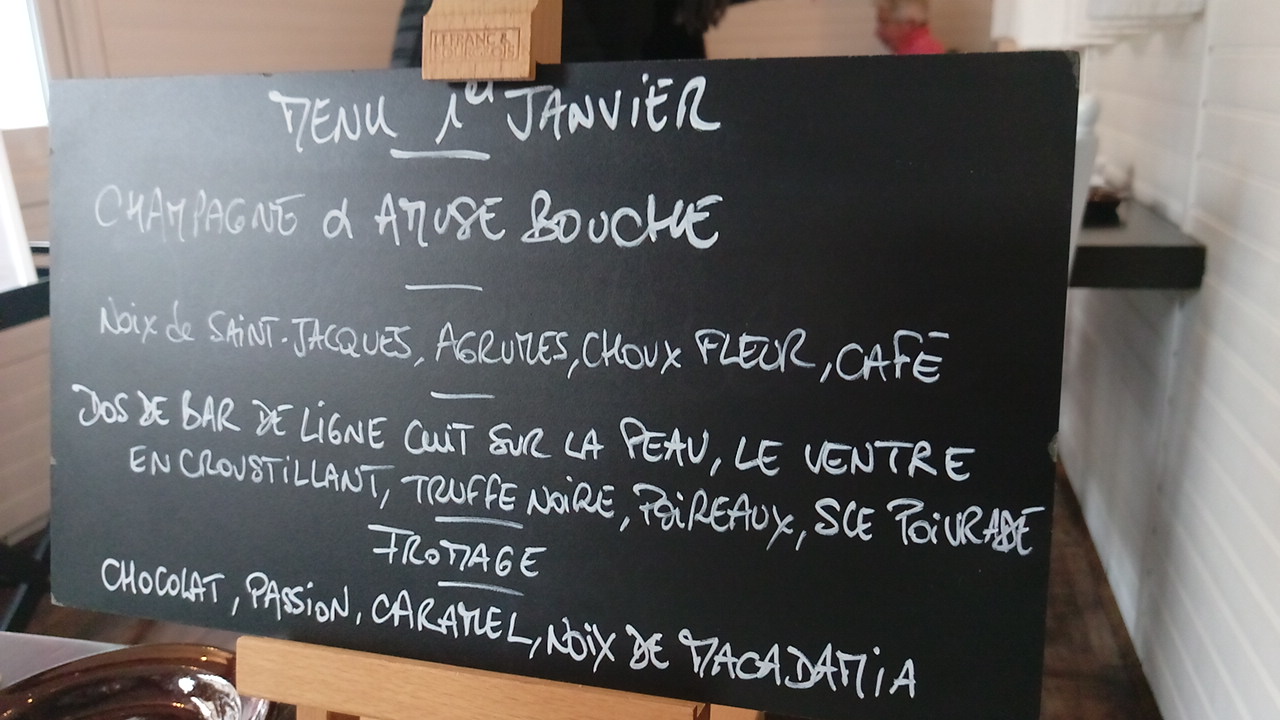 MENU 1er JANVIER
CHAMPAGNE & AMUSE BOUCHE
Noix de SAINT-JACQUES, AGRUMES, CHOUX FLEUR, CAFÉ
DOS DE BAR DE LIGNE CUIT SUR LA PEAU, LE VENTRE
EN CROUSTILLANT, TRUFFE NOIRE, POIREAUX, SCE POIVRADE
FROMAGE
CHOCOLAT, PASSION, CARAMEL, NOIX DE MACADAMIA